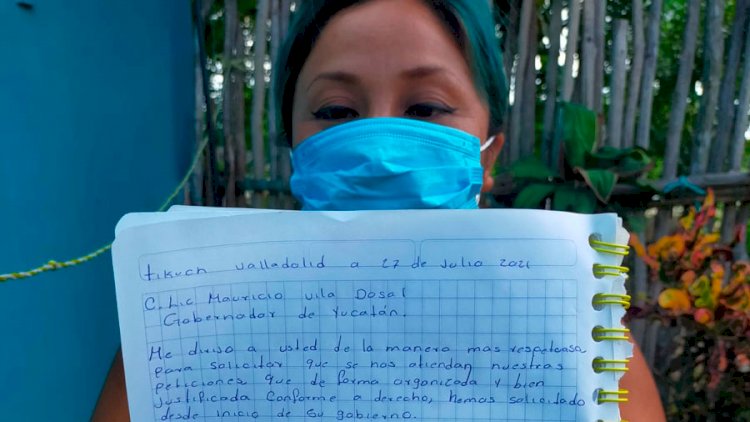 tikuch valladolid a 27 de Julio 2021
C. Lic Mauricio vila Dosal
Gobernador de Yucatán.
Me dirijo a usted de la manera mas respetuosa
para solicitar que se nos atiendan nuestras
peticiones que de forma organizada y bien
justificada conforme a derecho, hemos solicitado
desde inicio de su gobierno.